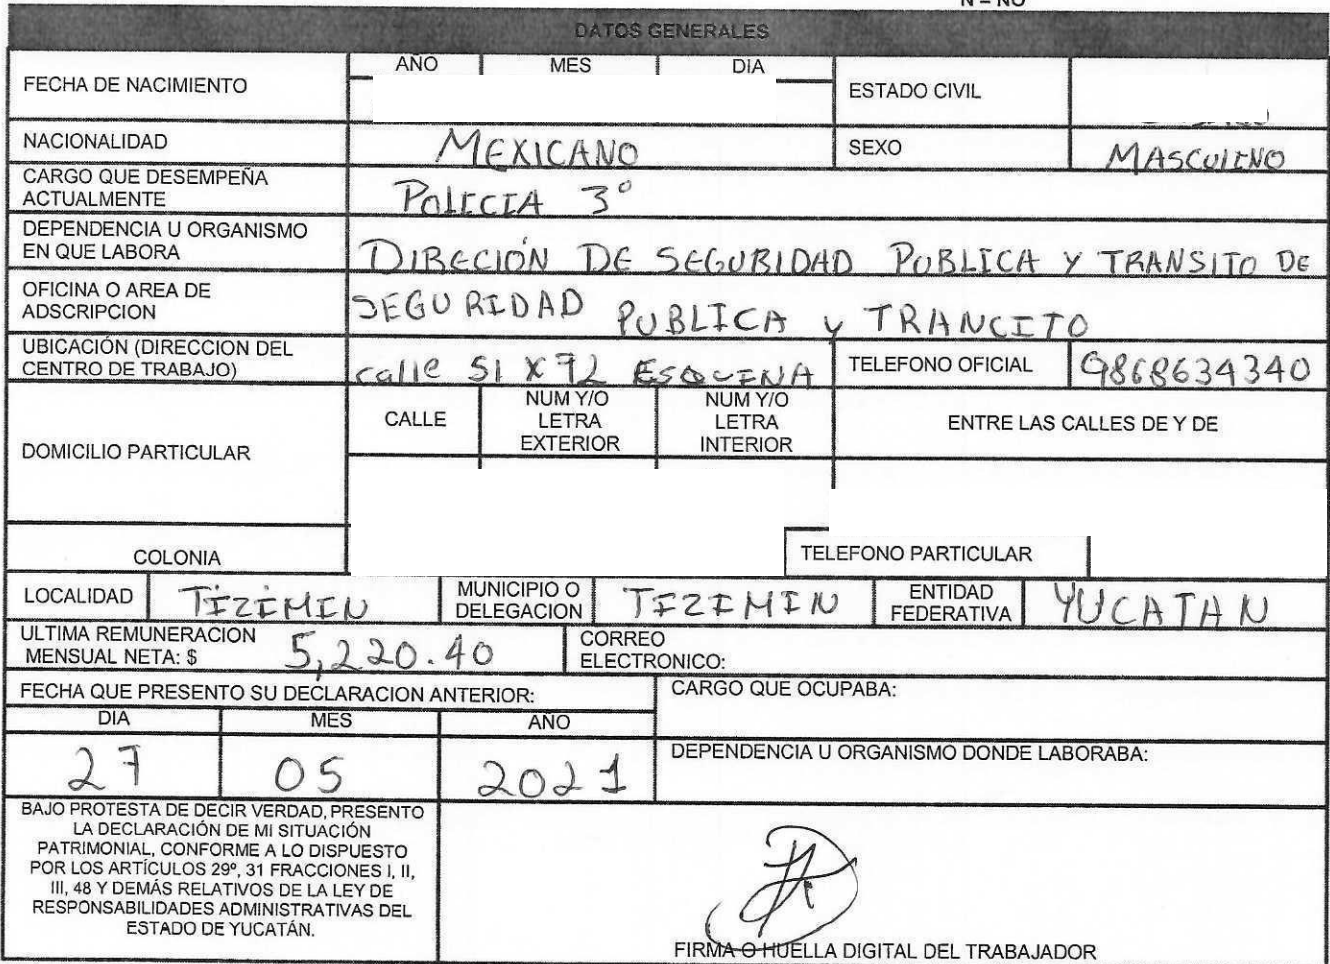 N = NO
DATOS GENERALES
AÑO MES DIA
FECHA DE NACIMIENTO ESTADO CIVIL
NACIONALIDAD MEXICANO SEXO MASCULINO
CARGO QUE DESEMPEÑA
ACTUALMENTE POLICIA 3°
DEPENDENCIA U ORGANISMO
EN QUE LABORA DIRECIÓN DE SEGURIDAD PUBLICA Y TRANSITO DE
OFICINA O AREA DE
ADSCRIPCION SEGURIDAD PUBLICA y TRANCITO
UBICACIÓN (DIRECCION DEL
CENTRO DE TRABAJO) calle 51 x 72 ESQUINA TELEFONO OFICIAL 9868634340
DOMICILIO PARTICULAR
CALLE
NUM Y/O
LETRA
EXTERIOR
NUM Y/O
LETRA
INTERIOR
ENTRE LAS CALLES DE Y DE
COLONIA TELEFONO PARTICULAR
LOCALIDAD TIZIMIN
MUNICIPIO O
DELEGACION TIZIMIN
ENTIDAD
FEDERATIVA YUCATAN
ULTIMA REMUNERACION
MENSUAL NETA: $ 5,220.40
CORREO
ELECTRONICO:
FECHA QUE PRESENTO SU DECLARACION ANTERIOR:
CARGO QUE OCUPABA:
DIA MES AÑO
27 05 2021
DEPENDENCIA U ORGANISMO DONDE LABORABA:
BAJO PROTESTA DE DECIR VERDAD, PRESENTO
LA DECLARACIÓN DE MI SITUACIÓN
PATRIMONIAL, CONFORME A LO DISPUESTO
POR LOS ARTÍCULOS 29º, 31 FRACCIONES I, II,
III, 48 Y DEMÁS RELATIVOS DE LA LEY DE
RESPONSABILIDADES ADMINISTRATIVAS DEL
ESTADO DE YUCATÁN.
FIRMA O HUELLA DIGITAL DEL TRABAJADOR